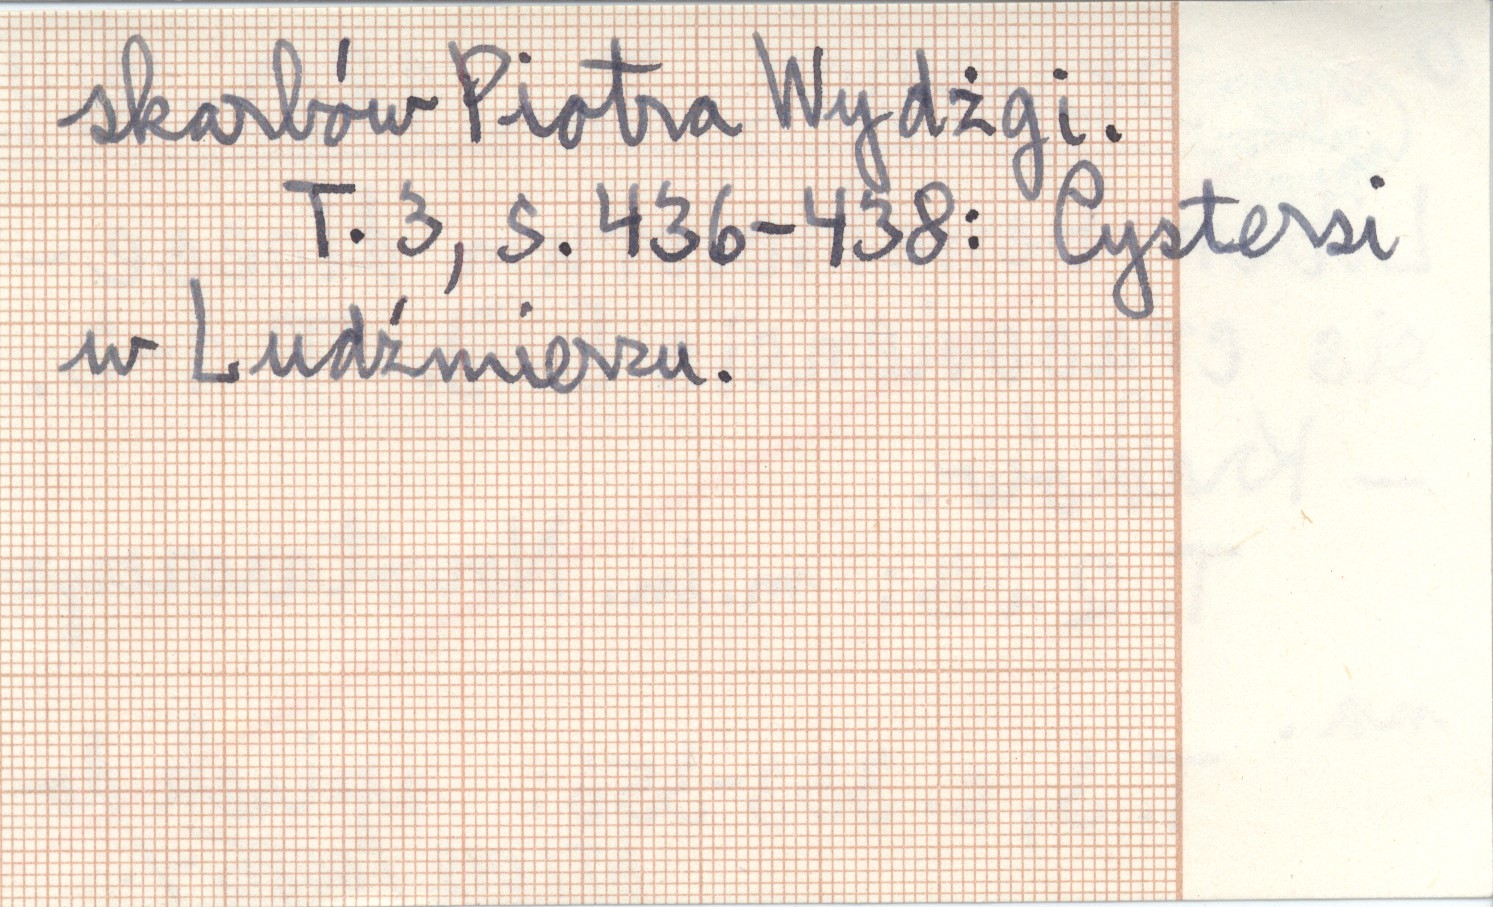 skarbów Piotra Wydżgi.
T. 3, s. 436-438: Cystersi
w Ludźmierzu.